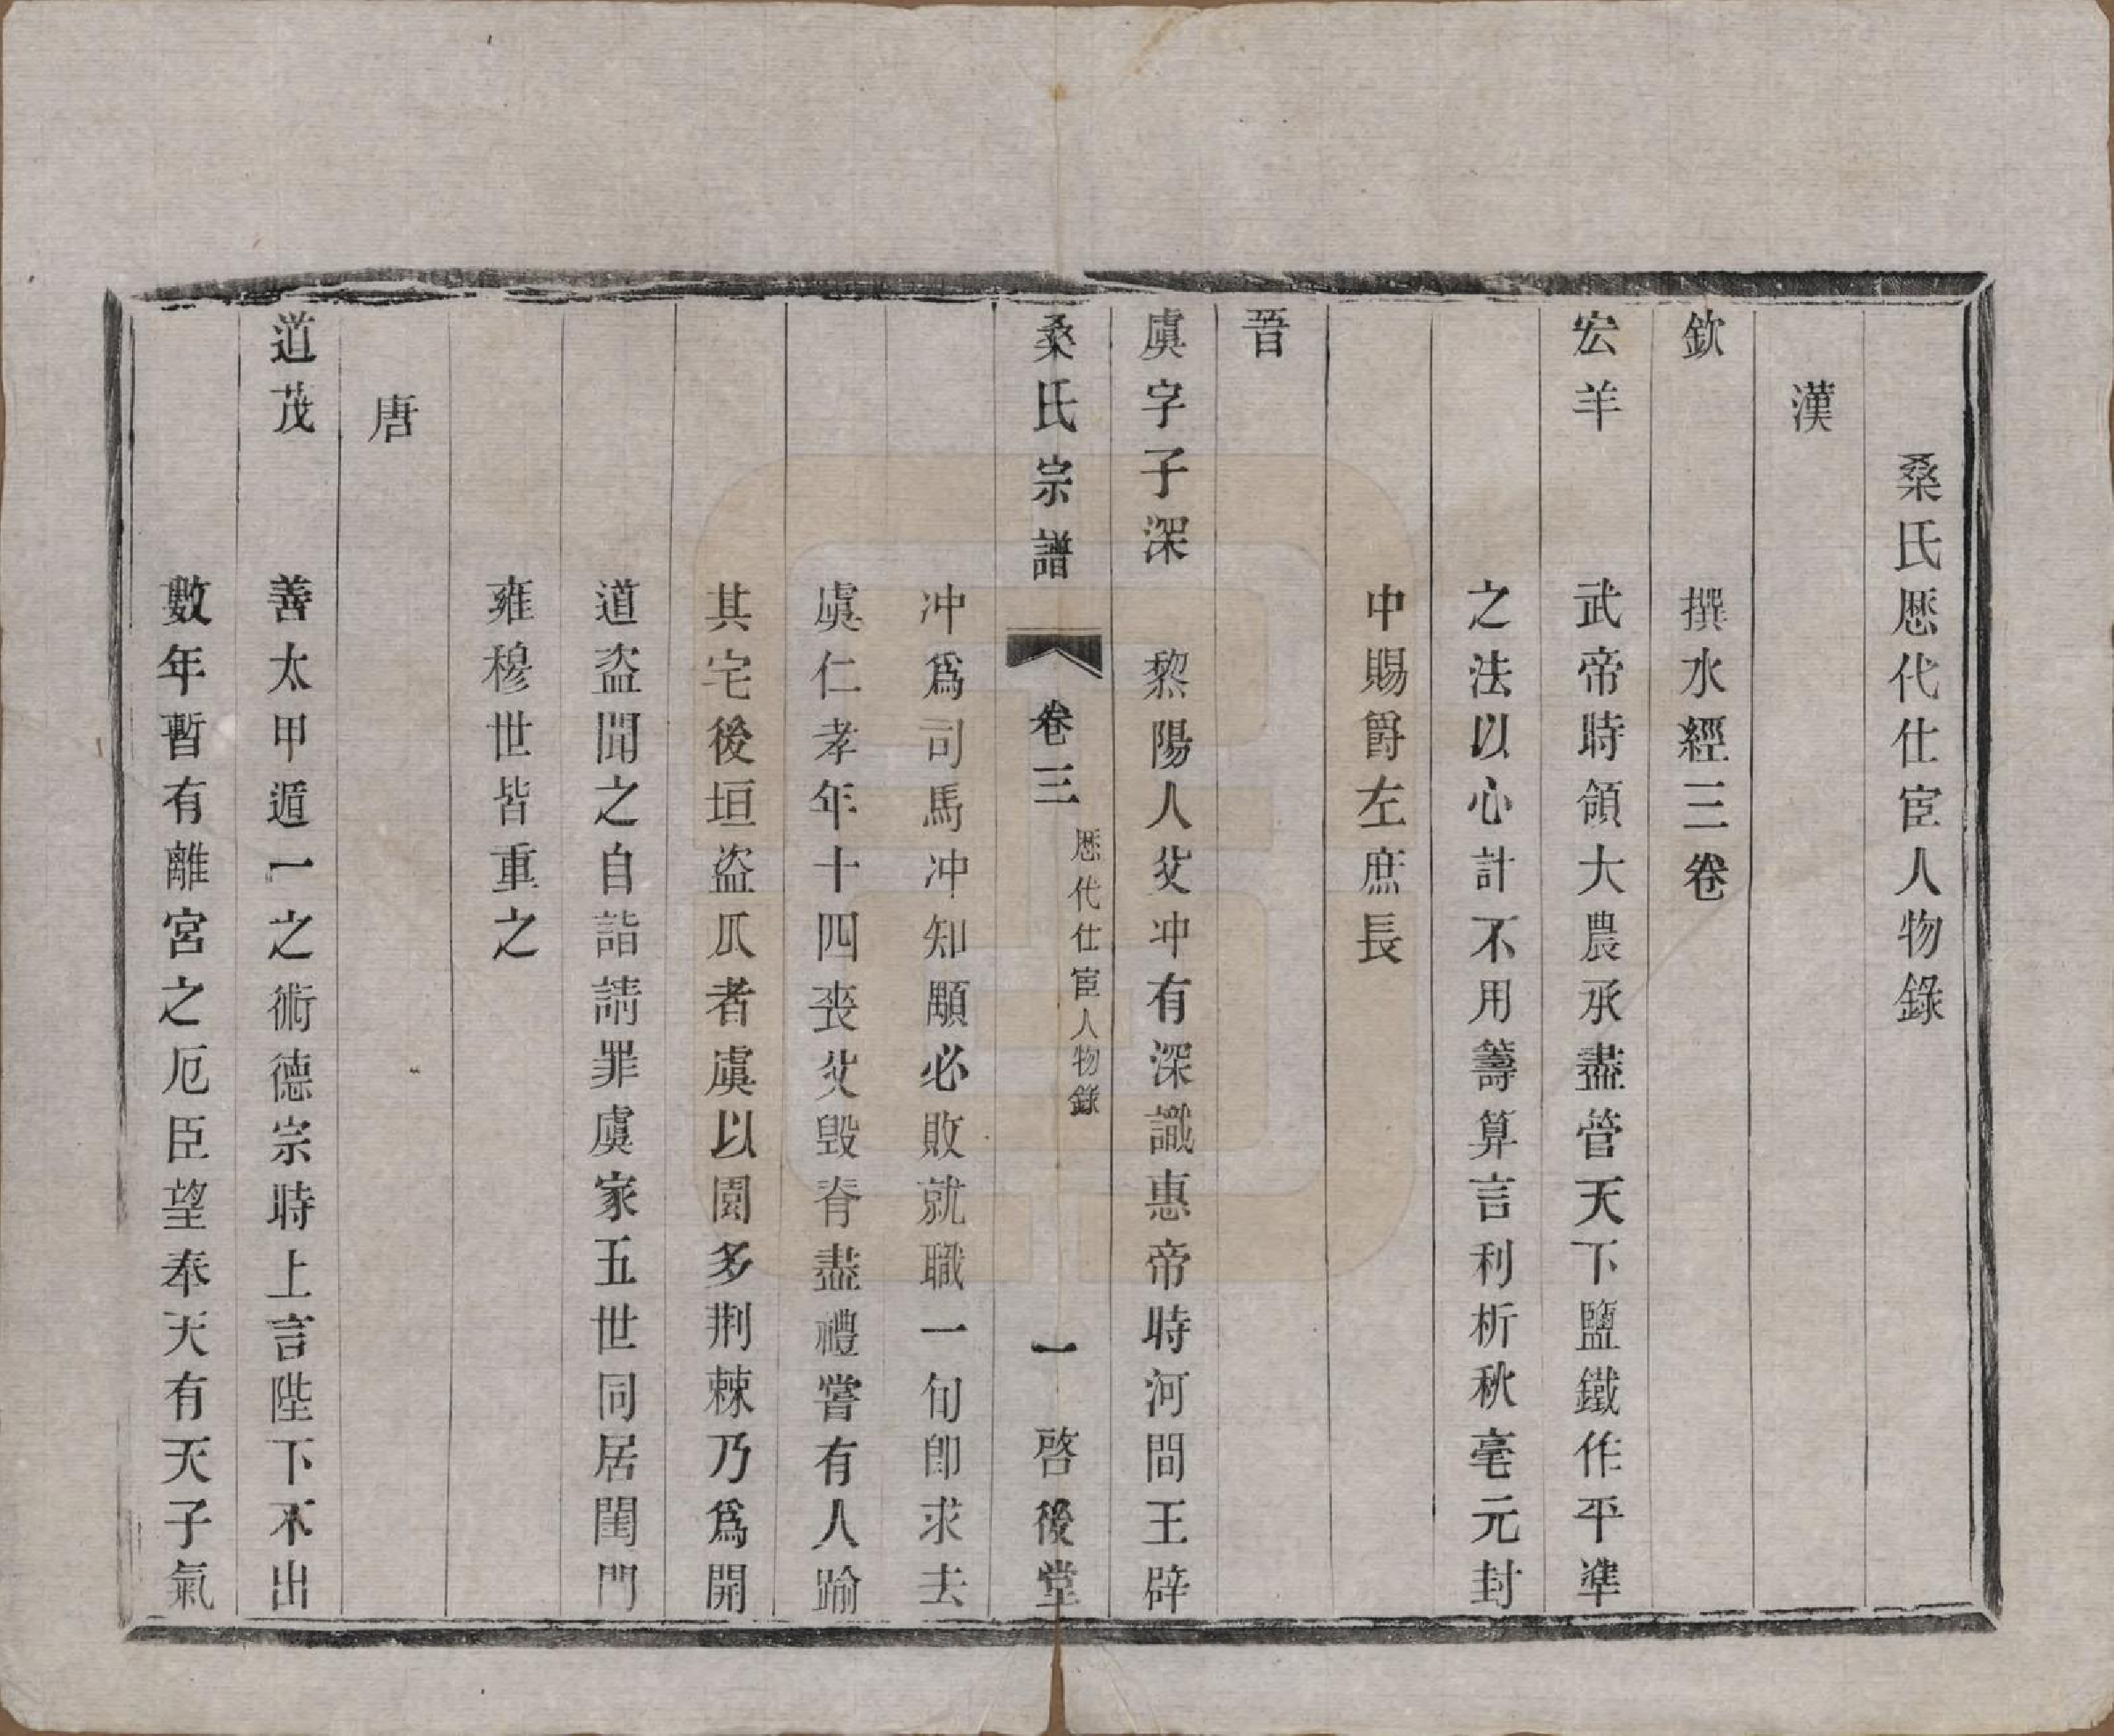 桑氏厯代仕宦人物錄
漢
欽　撰水經三卷
宏羊　武帝時領大農承盡管天下鹽鐵作平準
之法以心計不用籌算言利析秋毫元封
中賜爵左庶長
晉
虞字子深　黎陽人父冲有深識惠帝時河間王辟
桑氏宗譜　卷三　厯代仕宦人物錄　一　啓後堂
冲爲司馬冲知顒必敗就職一旬卽求去
虞仁孝年十四喪父毀脊盡禮嘗有人踰
其宅後垣盜爪者虞以園多荆棘乃爲開
道盜聞之自詣請罪虞家五世同居閨門
雍穆世皆重之
唐
道茂　善太甲遁一之術德宗時上言陛下不出
數年暫有離宮之厄臣望奉天有天子氣